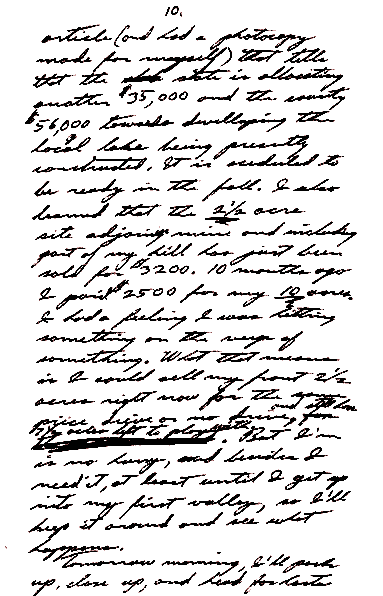 10.
article (and had a photocopy
made for myself) that tells
that the state is allocating
another $35,000 and the county
$56,000 towards developing the
local lake being presently
constructed. It is scheduled to
be ready in the fall. I also
learned that the 2½ acre
site adjoining mine and including
part of my hill has just been
sold for $3200. 10 months ago
I paid $2500 for my 10 acres.
I had a feeling I was getting
something on the verge of
something. What that means
is I could sell my front 2½
acres right now for the
price
. But I'm
in no hurry, and besides I
need it, at least until I get up
into my first valley, so I'll
keep it around and see what
happens.
Tomorrow morning, I'll pack
up, close up, and head for